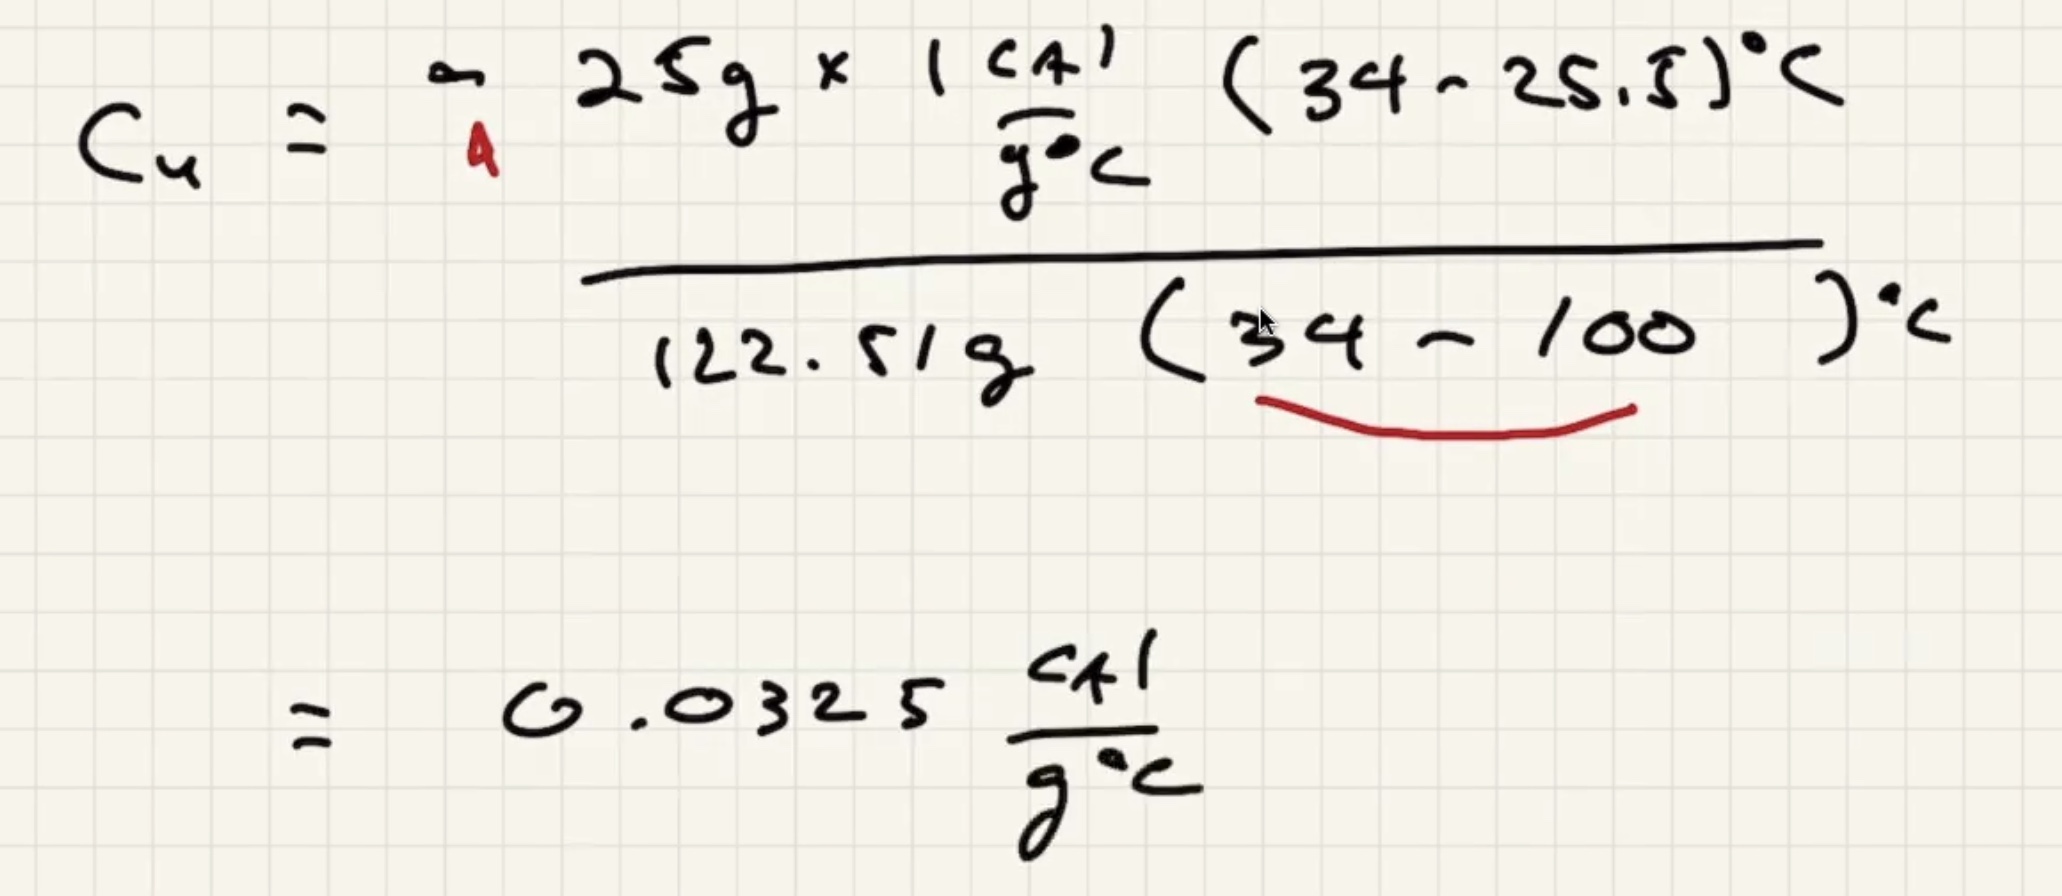 Cu = - 25g × 1 cal/g°C (34 - 25.5)°C
122.51g (34 - 100)°C
= 0.0325 cal/g°C